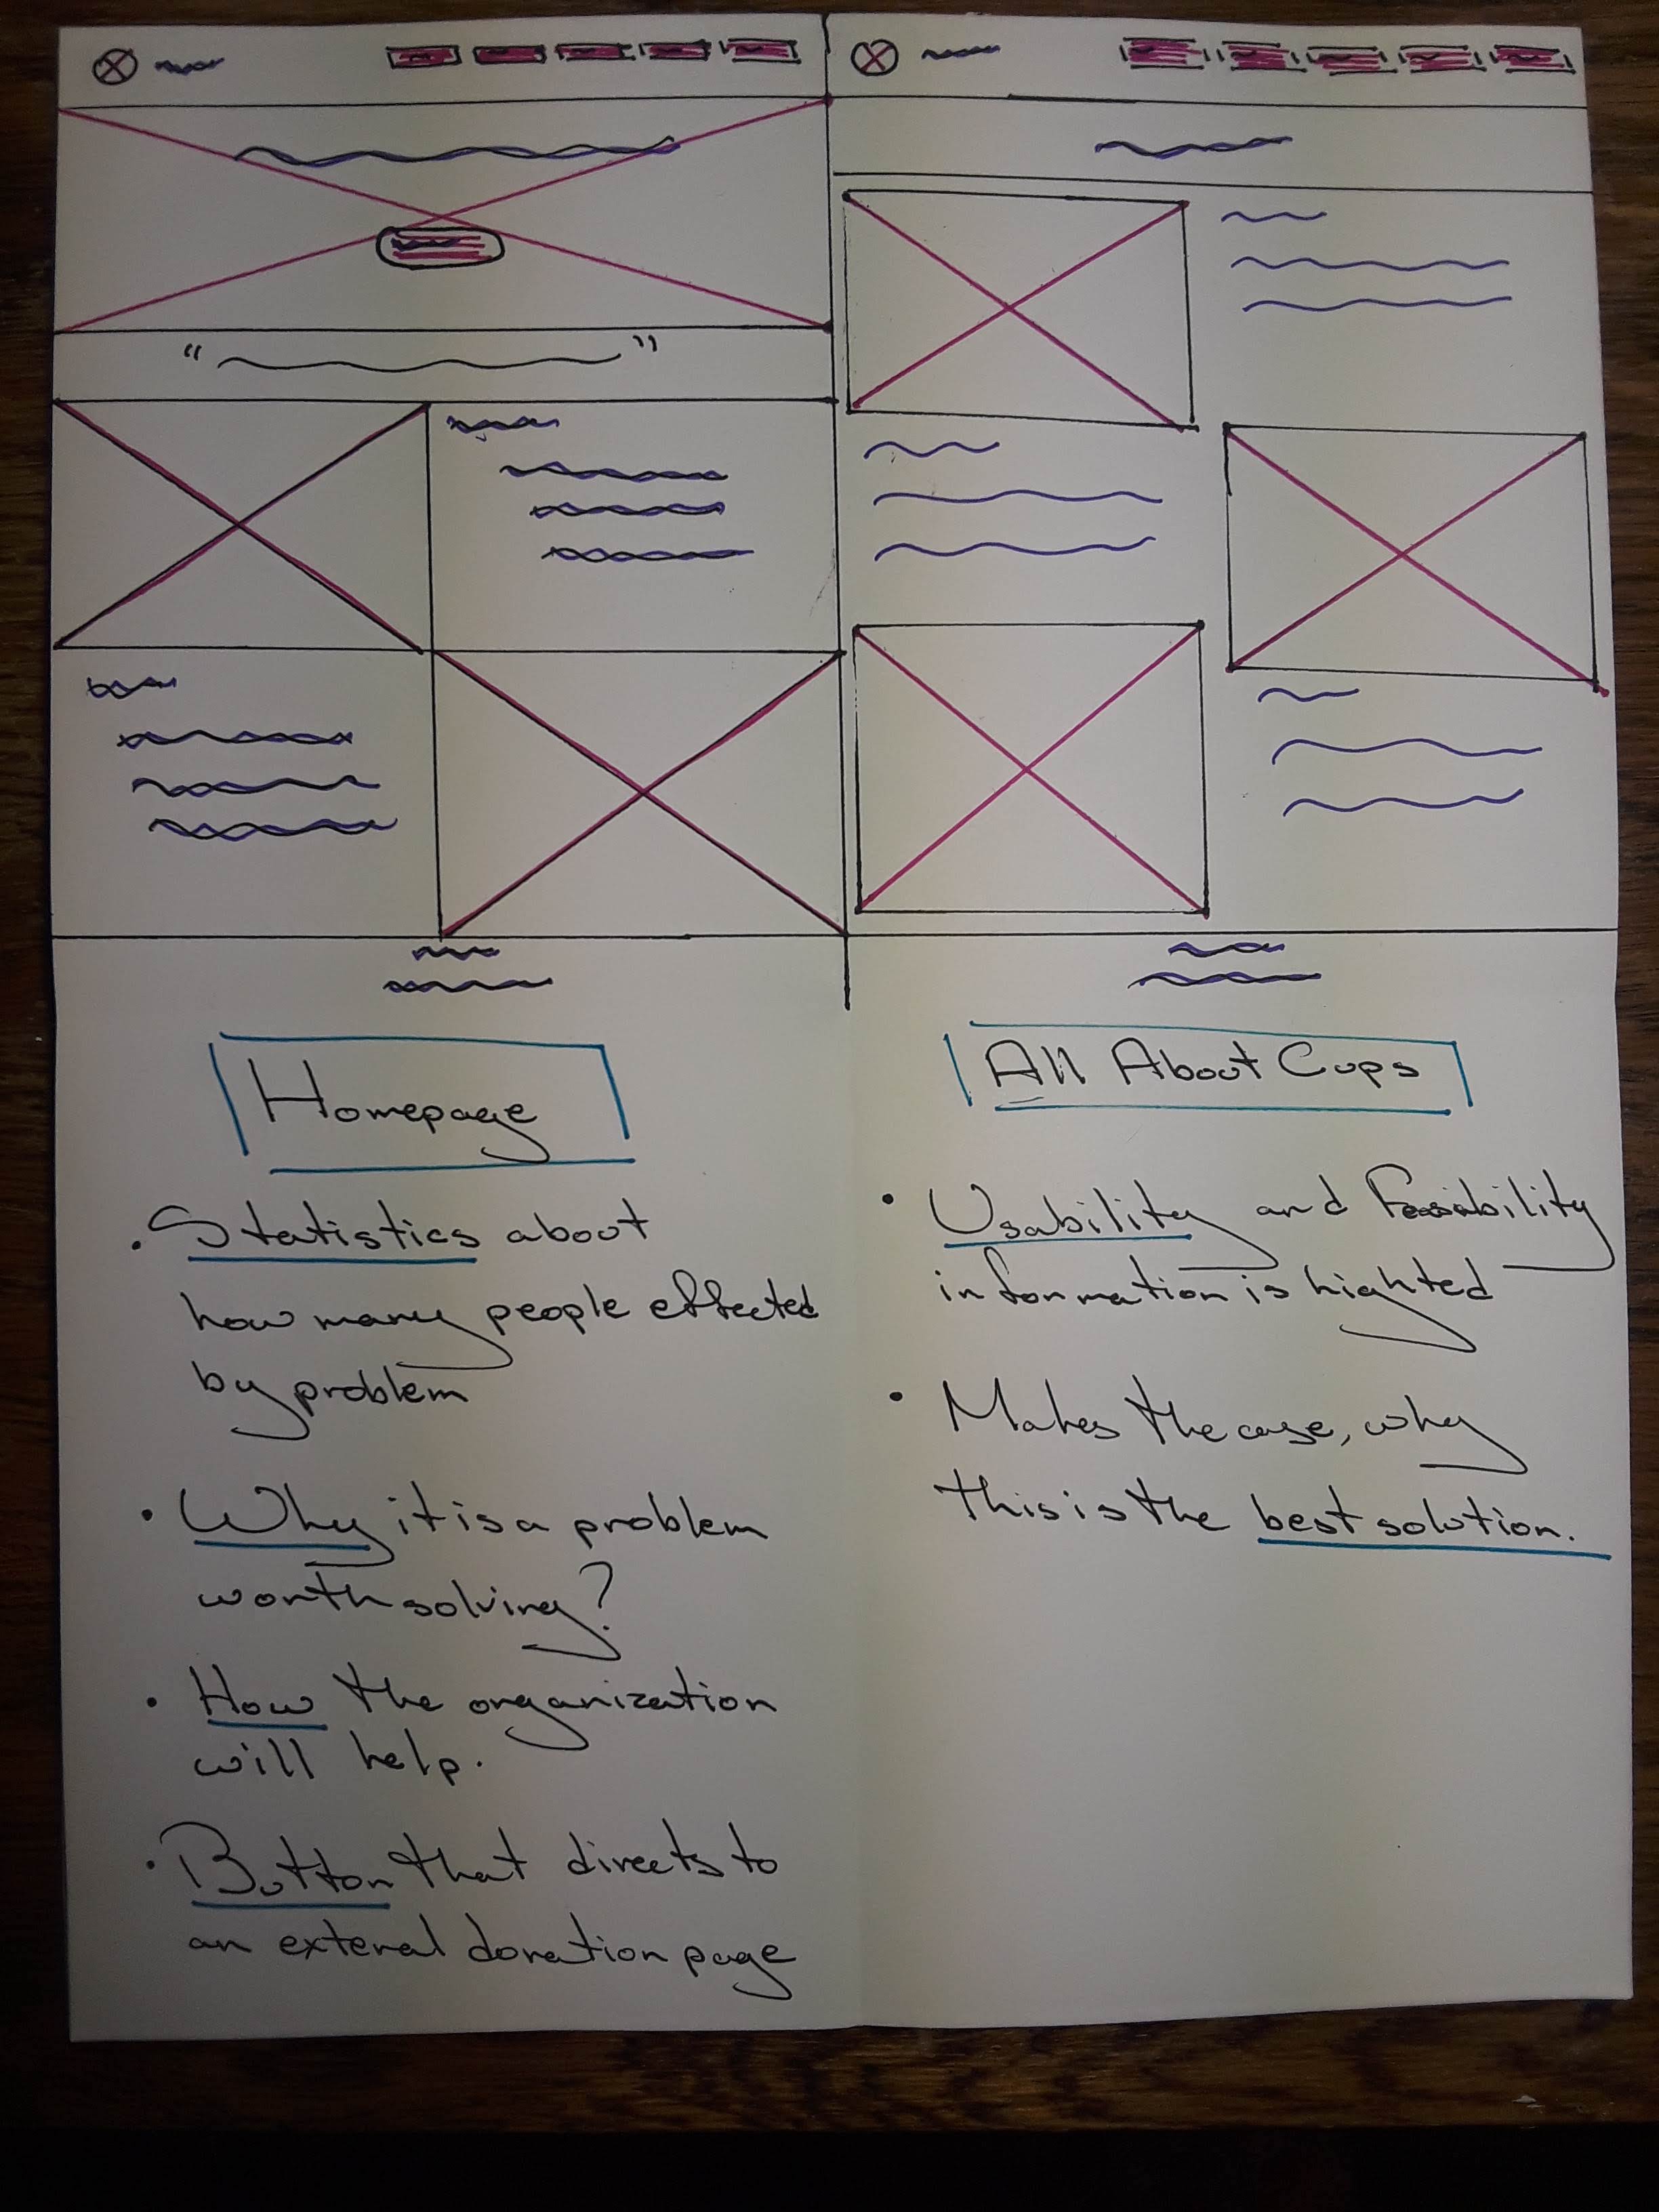 Homepage
. Statistics about
how many people effected
by problem
. Why it is a problem
worth solving?
. How the organization
will help.
. Button that directs to
an exteral donation page
All About Cups
. Usability and Feasibility
information is highted
. Makes the case, why
this is the best solution.